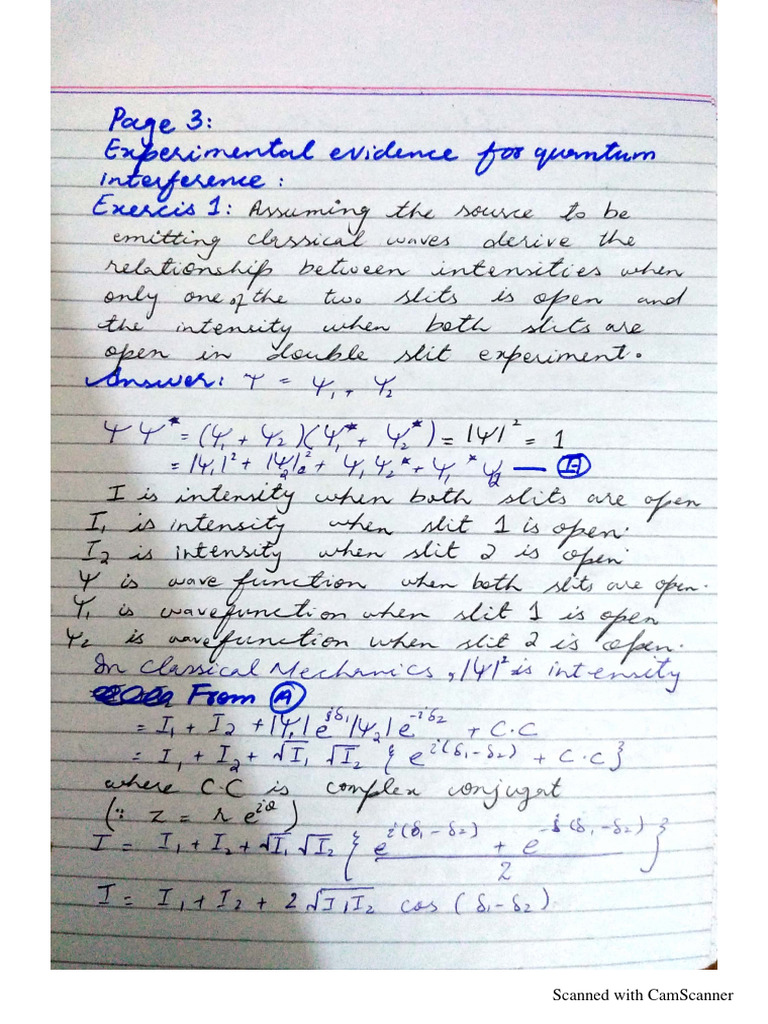 Page 3:
Experimental evidence for quantum
interference:
Exercis 1: Assuming the source to be
emitting classical waves derive the
relationship between intensities when
only one of the two slits is open and
the intensity when both slits are
open in double slit experiment.
Answer: Ψ = Ψ₁ + Ψ₂
ΨΨ* = (Ψ₁ + Ψ₂)(Ψ₁* + Ψ₂*) = |Ψ|² = 1
= |Ψ₁|² + |Ψ₂|² + Ψ₁Ψ₂* + Ψ₁*Ψ₂ —
I is intensity when both slits are open
I₁ is intensity when slit 1 is open.
I₂ is intensity when slit 2 is open
Ψ is wave function when both slits are open.
Ψ₁ is wavefunction when slit 1 is open
Ψ₂ is wavefunction when slit 2 is open.
In Classical Mechanics, |Ψ|² is intensity
From (A)
= I₁ + I₂ + |Ψ₁| e^{iδ₁} |Ψ₂| e^{-iδ₂} + C.C
= I₁ + I₂ + √I₁ √I₂ { e^{i(δ₁-δ₂)} + C.C }
where C.C is complex conjugat
(∵ z = r e^{iθ})
I = I₁ + I₂ + √I₁ √I₂ { (e^{i(δ₁-δ₂)} + e^{-i(δ₁-δ₂)}) / 2 }
I = I₁ + I₂ + 2√I₁I₂ cos (δ₁-δ₂)
Scanned with CamScanner